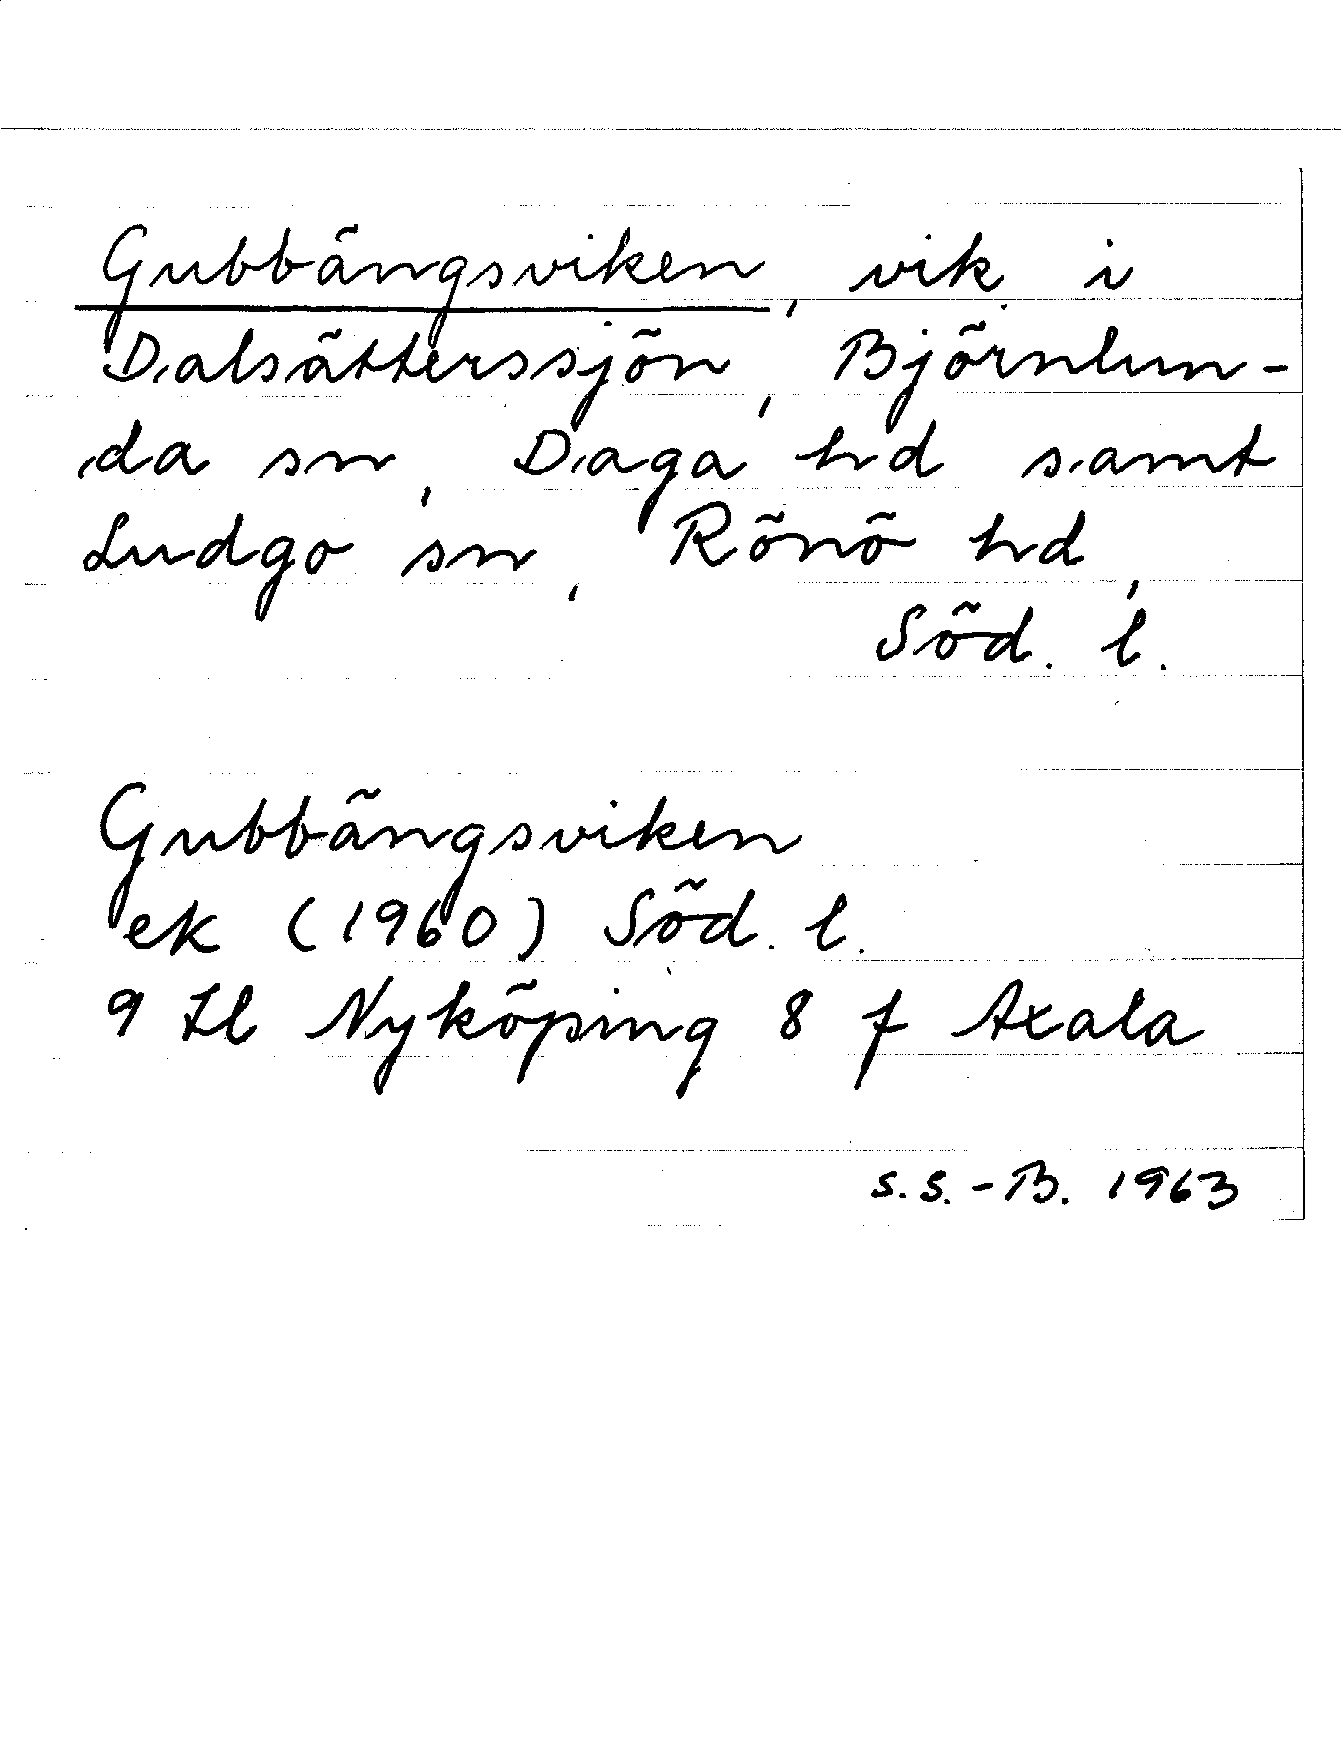 Gubbängsviken, vik i
Dalsätterssjön, Björnlun-
da sn, Daga hd samt
Ludgo sn, Rönö hd,
Söd. l.
Gubbängsviken
ek (1960) Söd. l.
9 Nyköping 8 f Axala
S.S.-B. 1963